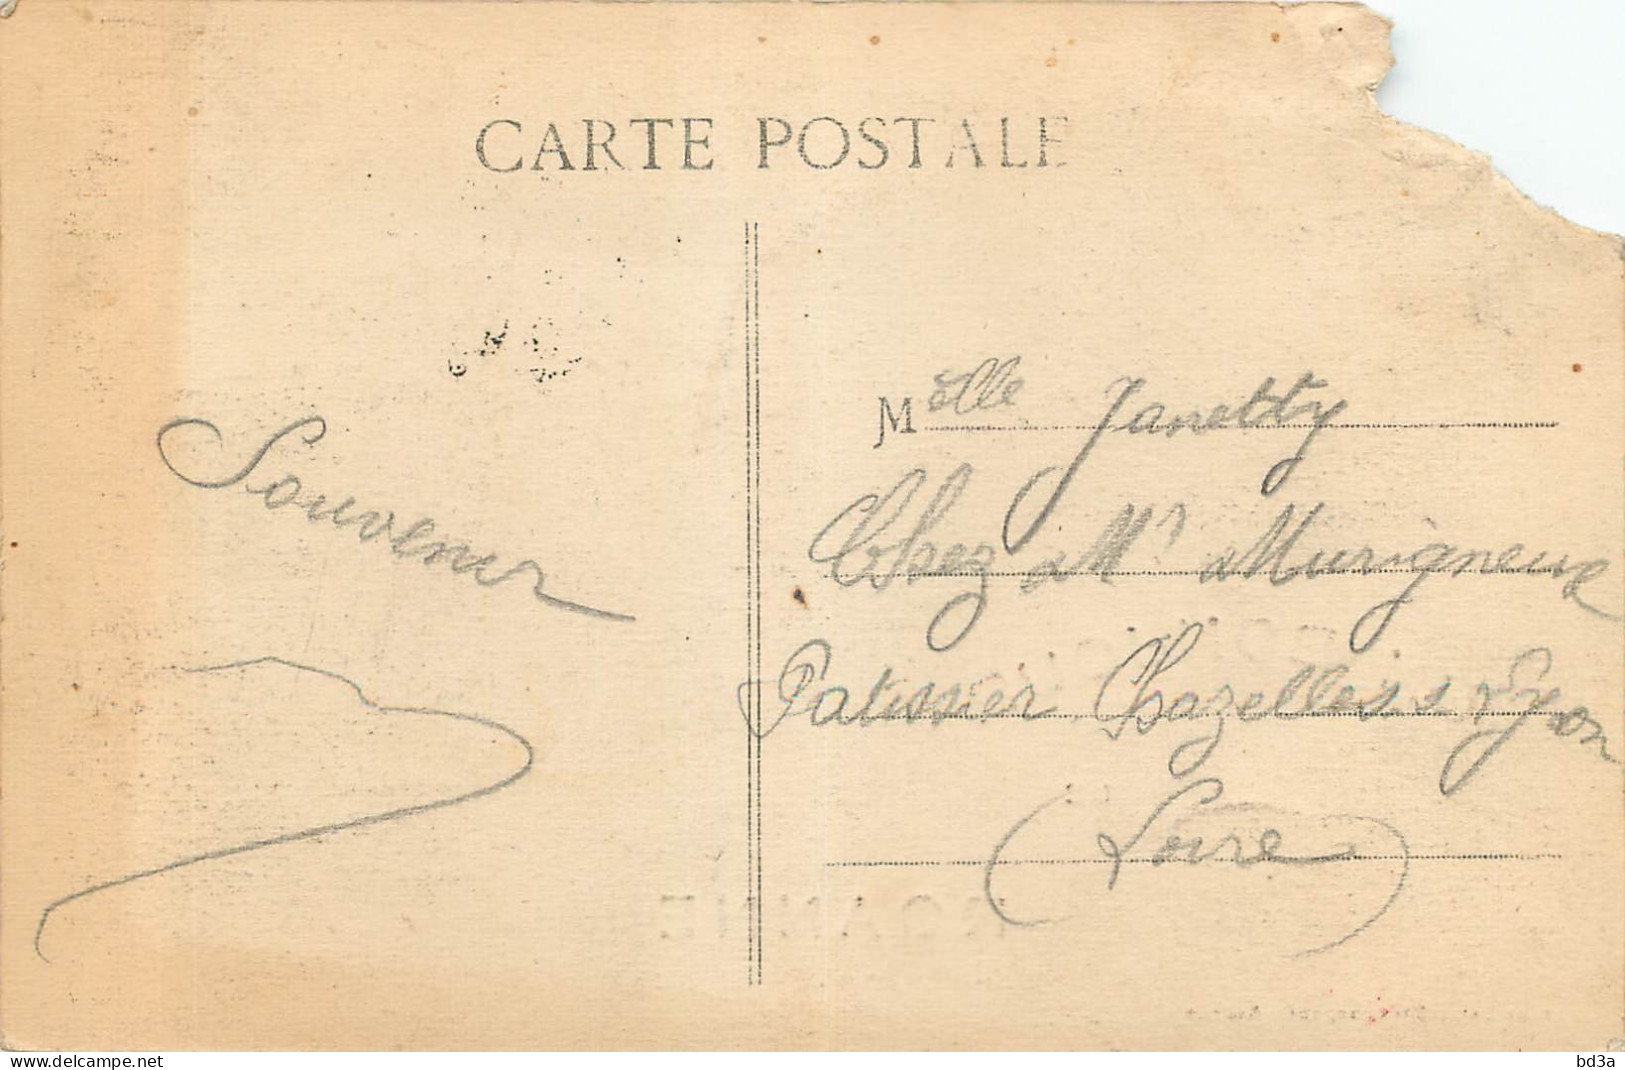 CARTE POSTALE
Souvenir
Melle Janetty
Chez Mr Murigneux
Patissier Chazelles s Lyon
(Loire)
ROANNE
www.delcampe.net
bd3a